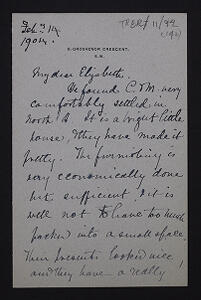 Feb. 14.
1904.
TRER/ 11/94
(141)
GROSVENOR CRESCENT,
S.W.
My dear Elizabeth.
We found C. M. very
comfortably settled in
North St. It is a bright little
house, & they have made it
pretty. The furnishing is
very economically done
but sufficient, & it is
well not to have too much
packed into a small space.
Their presents looked nice,
and they have a really